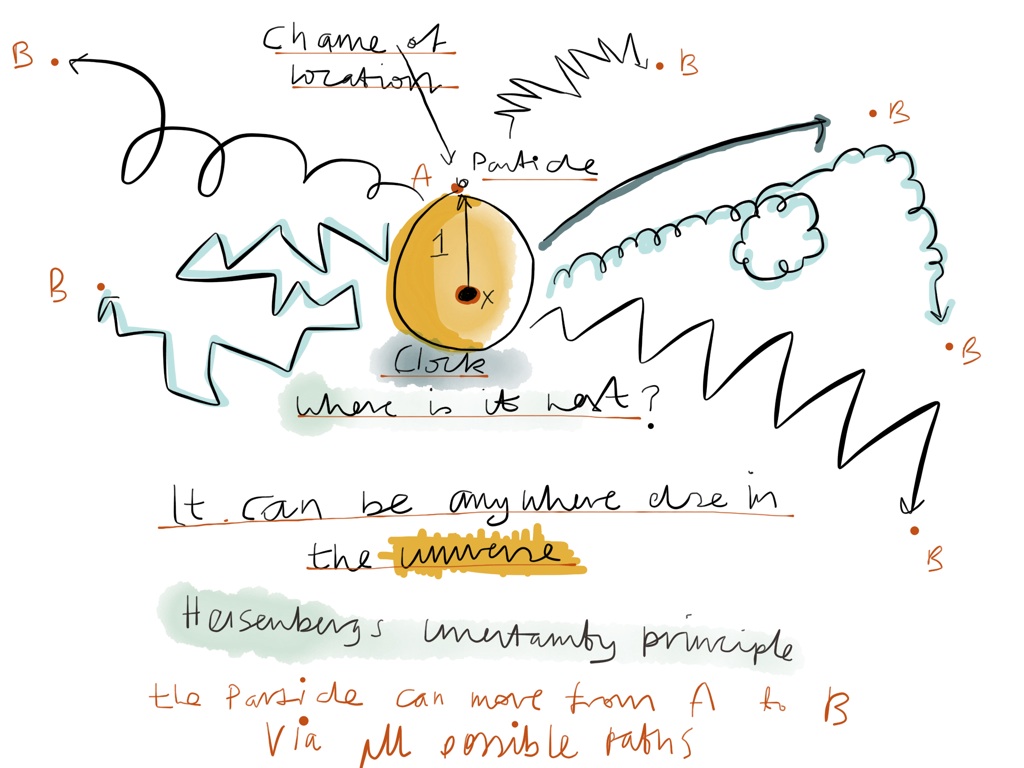 Chance of
location
B
B
B
A Particle
1
x
B
B
Clock
where is it next?
B
It can be anywhere else in
the universe
Heisenbergs uncertainty principle
the Particle can move from A to B
Via all possible paths